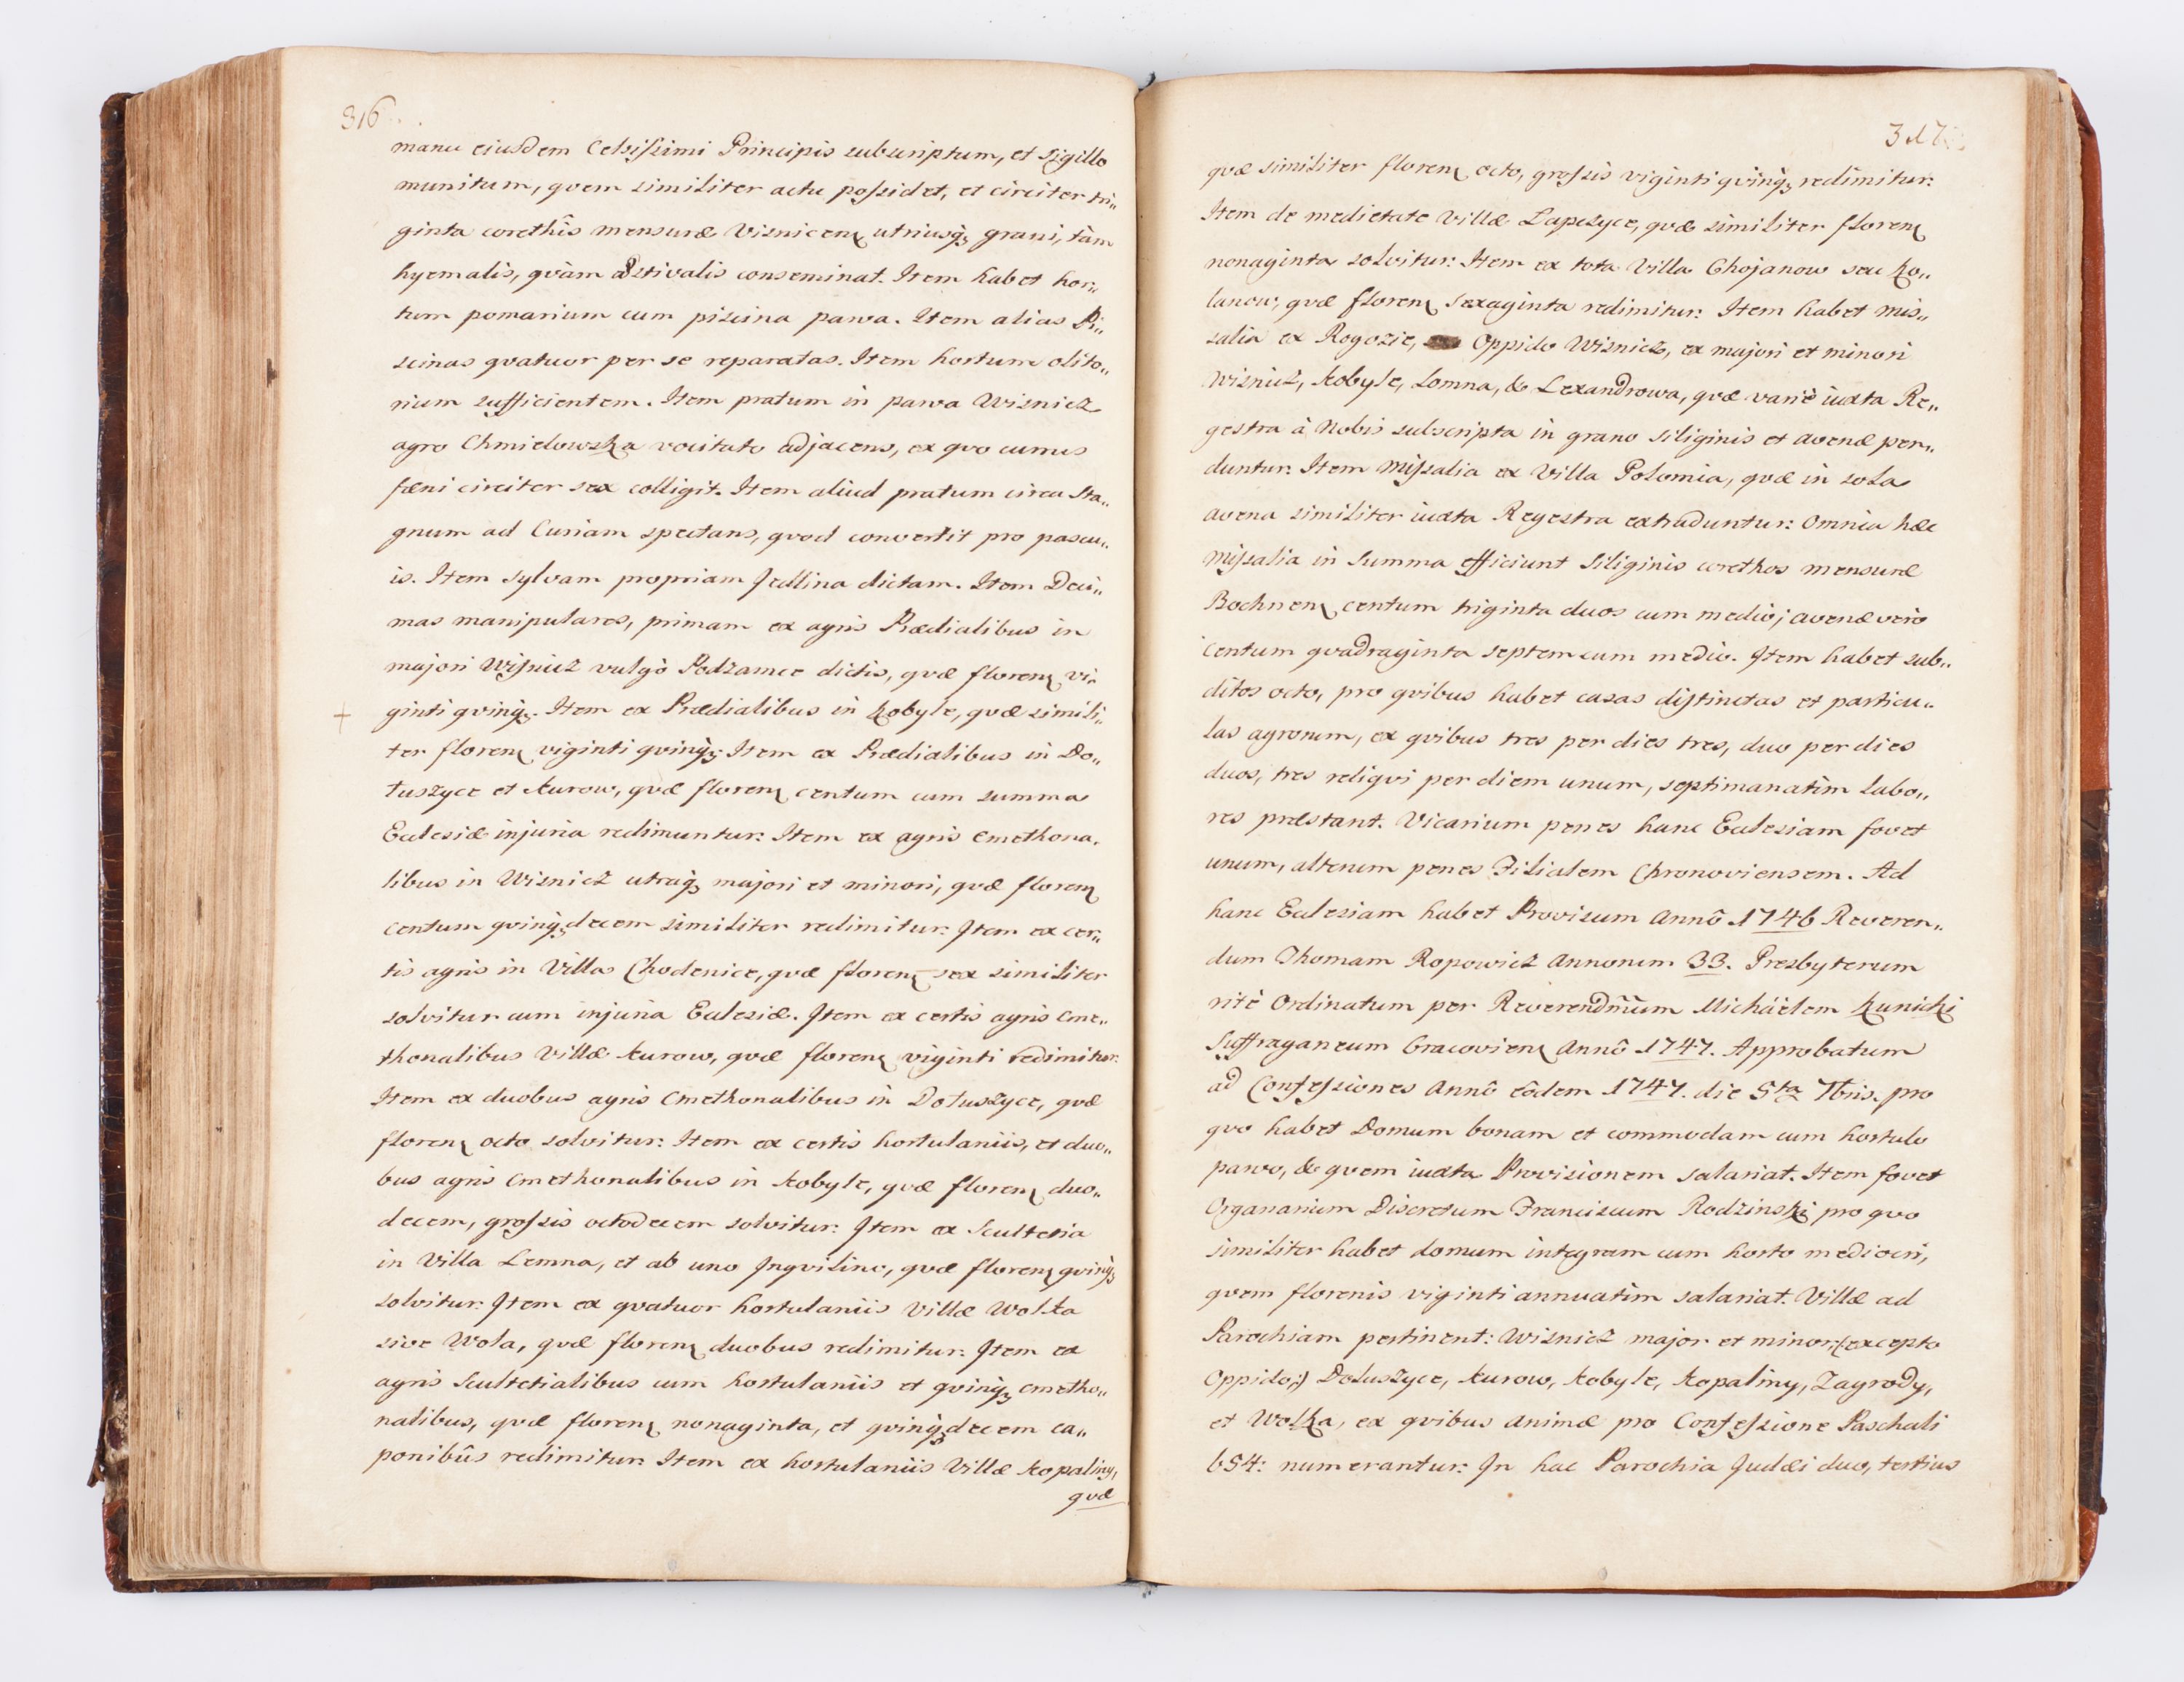 316
manu ejusdem Celsissimi Principis subscriptum, et Sigillo
munitum, qvem similiter actu possidet, et circiter tri„
ginta corethîs mensuræ Visnicen utriusq; grani, tàm
hyemalis, qvàm æstivalis conseminat. Item habet hor„
tum pomarium cum piscina parva. Item alias Pi„
scinas qvatuor per se reparatas. Item hortum olito„
rium sufficientem. Item pratum in parva Wisnicz
agro Chmielowska vocitato adjacens, ex qvo currus
fæni circiter sex colligit. Item aliud pratum circa Sta„
gnum ad Curiam spectans, qvod convertit pro pascu„
is. Item Sylvam propriam Jedlina dictam. Item Deci„
mas manipulares, primam ex agris Prædialibus in
majori Wisnicz vulgò Podzamcze dictis, qvæ floren vi„
ginti qvinq;. Item ex Prædialibus in Kobyle, qvæ simili„
ter floren viginti qvinq; Item ex Prædialibus in Do„
łuszyce et Kurow, qvæ floren centum cum summa
Ecclesiæ injuria redimuntur: Item ex agris Cmethona„
libus in Wisnicz utraq; majori et minori, qvæ floren
centum qvinq;decem similiter redimitur: Item ex cer„
tis agris in Villa Chodenice, qvæ floren sex similiter
solvitur cum injuria Ecclesiæ. Item ex certis agris Cme„
thonalibus Villæ Kurow, qvæ floren viginti redimitur:
Item ex duobus agris Cmethonalibus in Dołuszyce, qvæ
floren octo solvitur: Item ex certis hortulaniis, et duo„
bus agris Cmethonalibus in Kobyle, qvæ floren duo„
decem, grossis octodecem solvitur: Item ex Scultetia
in Villa Lemna, et ab uno Inqvilino, qvæ floren qvinq;
solvitur: Item ex qvatuor hortulaniis Villæ Wolka
sive Wola, qvæ floren duobus redimitur: Item ex
agris Scultetialibus cum hortulaniis et qvinq; cmetho„
nalibus, qvæ floren nonaginta, et qvinq;decem ca„
ponibûs redimitur: Item ex hortulaniis Villæ Kopaliny,
qvæ
317
qvæ similiter floren octo, grossis viginti qvinq; redimitur:
Item de medietate Villæ Lapczyce, qvæ similiter floren
nonaginta solvitur: Item ex tota Villa Chojanow seu Ko„
lanow, qvæ floren Sexaginta redimitur: Item habet mis„
salia ex Rogozie, Oppido Wisnicz, ex majori et minori
Wisnicz, Kobyle, Lomna, & Lexandrowa, qvæ variè iuxta Re„
gestra à Nobis subscripta in grano Siliginis et avenæ pen„
duntur: Item Missalia ex Villa Polomia, qvæ in sola
avena similiter iuxta Regestra extraduntur: Omnia hæc
Missalia in Summa efficiunt Siliginis corethos mensuræ
Bochnen centum triginta duos cum medio; avenæ vero
centum qvadraginta septem cum medio. Item habet sub„
ditos octo, pro qvibus habet casas distinctas et particu„
las agrorum, ex qvibus tres per dies tres, duo per dies
duos, tres reliqvi per diem unum, septimanatim labo„
res præstant. Vicarium penes hanc Ecclesiam fovet
unum, alterum penes Filialem Chronoviensem. Ad
hanc Ecclesiam habet Provisum Annô 1746 Reveren„
dum Thomam Ropowicz Annorum 33. Presbyterum
ritè Ordinatum per Reverendm̃um Michäelem Kunicki
Suffraganeum Cracovien Annô 1747. Approbatum
ad Confessiones Annô eôdem 1747. die 5ta 7bris. pro
qvo habet Domum bonam et commodam cum hortulo
parvo, & qvem iuxta Provisionem salariat. Item fovet
Organarium Discretum Franciscum Rodzinski pro qvo
similiter habet domum integram cum horto mediocri,
qvem florenis viginti annuatim salariat. Villæ ad
Parochiam pertinent: Wisnicz major et minor,(excepto
Oppido;) Dołuszyce, Kurow, Kobyle, Kopaliny, Zagrody,
et Wolka, ex qvibus animæ pro Confessione Paschali
654: numerantur: In hac Parochia Judæi duo, tertius